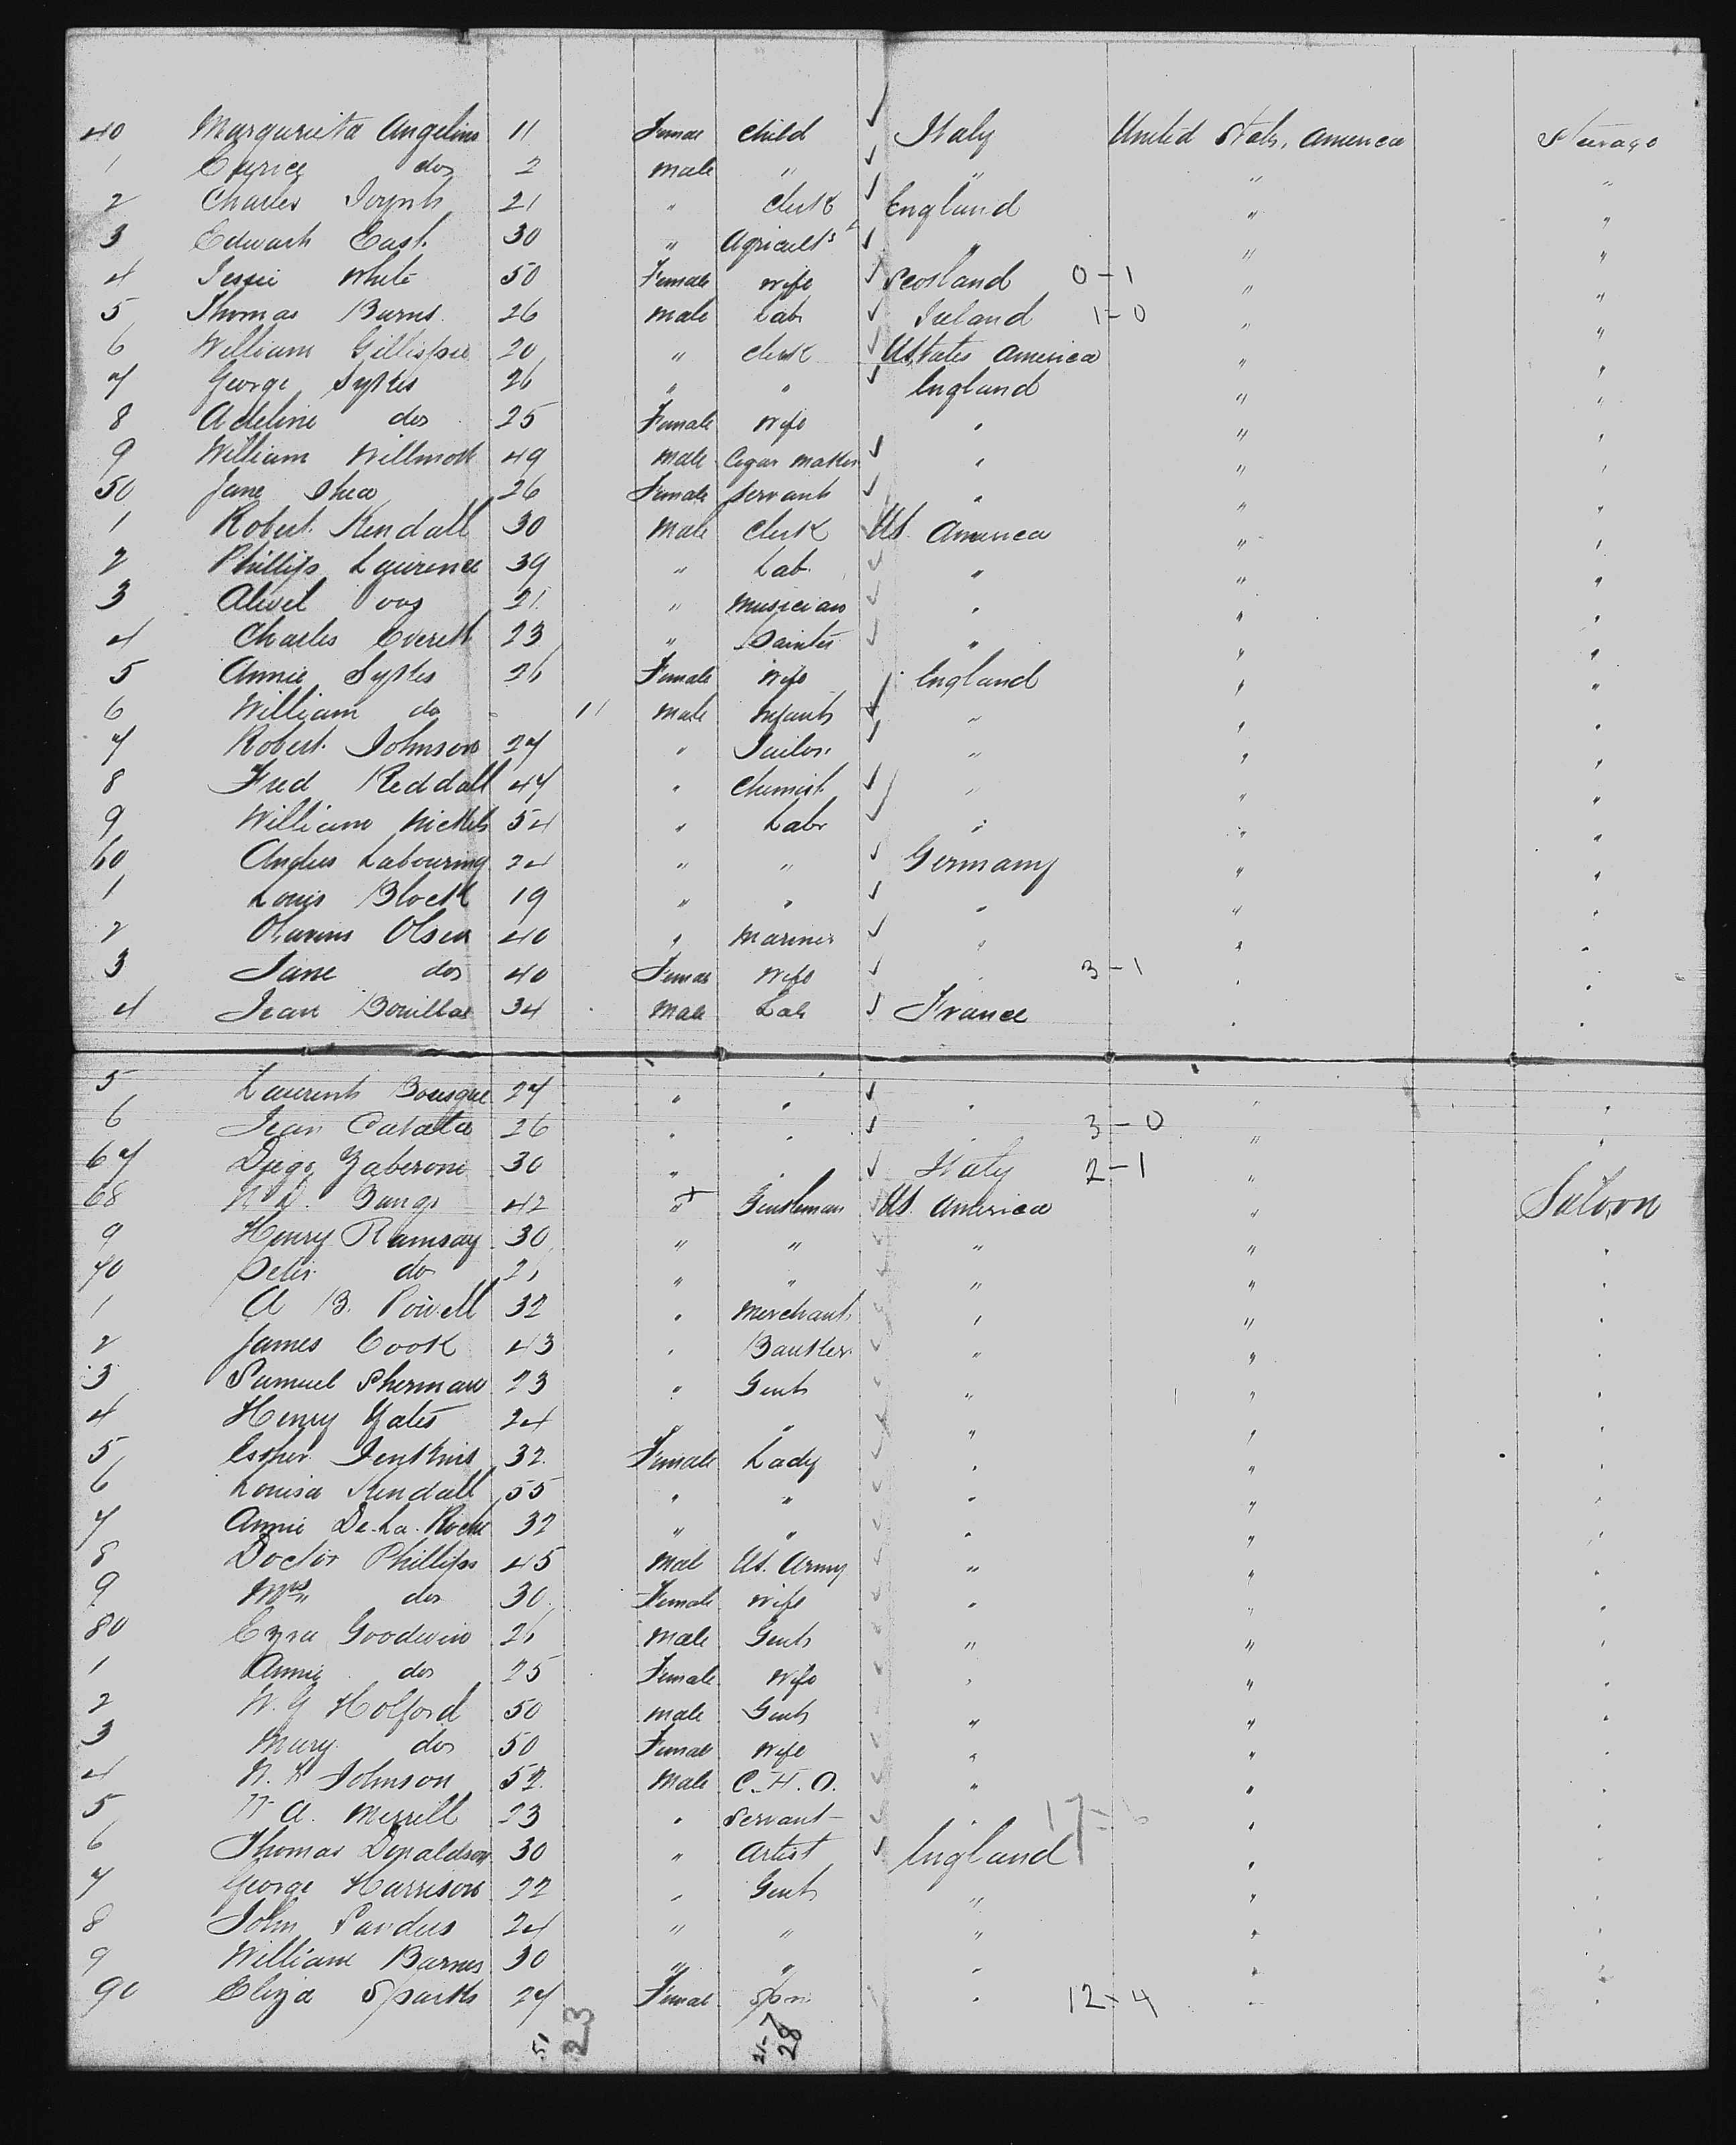 40 Margarieta Angelino 11 Female Child Italy United States, America Steerage
1 do 2 male " " " "
2 Charles 21 " Clerk England " "
3 Edward East 30 " Agricults " " "
4 Jessie White 50 Female Wife Scotland 0-1 " "
5 Thomas Burns 26 Male Lab Ireland 1-0 " "
6 William Gillispie 20 " Clerk U States America " "
7 George Sykes 26 " " England " "
8 Adeline do 25 Female Wife " " "
9 William Willmott 49 Male Cigar Maker " " "
50 Jane Shea 26 Female Servant " " "
1 Robert Kendall 30 Male Clerk US America " "
2 Phillip Laurence 39 " Lab " " "
3 21 " Musician " " "
4 Charles Everett 23 " Painter " " "
5 Annie Sykes 26 Female Wife England " "
6 William do 11 Male Infant " " "
7 Robert Johnson 27 " Tailor " " "
8 Fred Reddall 47 " Chemist " " "
9 William Nickels 54 " Labr " " "
60 Labouring 24 " " Germany " "
1 Louis Block 19 " " " " "
2 Olsen 40 " Mariner " " "
3 Jane do 40 Female Wife " 3-1 " "
4 Jean Bouillas 34 Male Lab France " "
5 Laurent Bousque 27 " " " " "
6 Jean Catala 26 " " " 3-0 " "
67 Diego Zaberoni 30 " " Italy 2-1 " "
68 N. D. Bangs 42 " Gentleman US. America " Saloon
9 Henry Ramsay 30 " " " " "
70 Peter do 26 " " " " "
1 A B. Powell 32 " Merchant " " "
2 James Cook 43 " Banker " " "
3 Samuel Sherman 23 " Gent " " "
4 Henry Yates 24 " " " " "
5 Esther Jenkins 32 Female Lady " " "
6 Louisa Kendall 55 " " " " "
7 Annie De. La. Roche 32 " " " " "
8 Doctor Phillips 45 Male US. Army " " "
9 Mrs do 30 Female Wife " " "
80 Ezra Goodwin 26 Male Gent " " "
1 Annie do 25 Female Wife " " "
2 W. G Holford 50 Male Gent " " "
3 Mary do 50 Female Wife " " "
4 Johnson 52 Male " " "
5 A. Merrill 23 " Servant " " "
6 Thomas Donaldson 30 " Artist England " "
7 George Harrison 22 " Gent " " "
8 John Sanders 24 " " " " "
9 William Barnes 30 " " " " "
90 Eliza Sparks 27 Female Spn " 12-4 " "
51 23 21-7 28